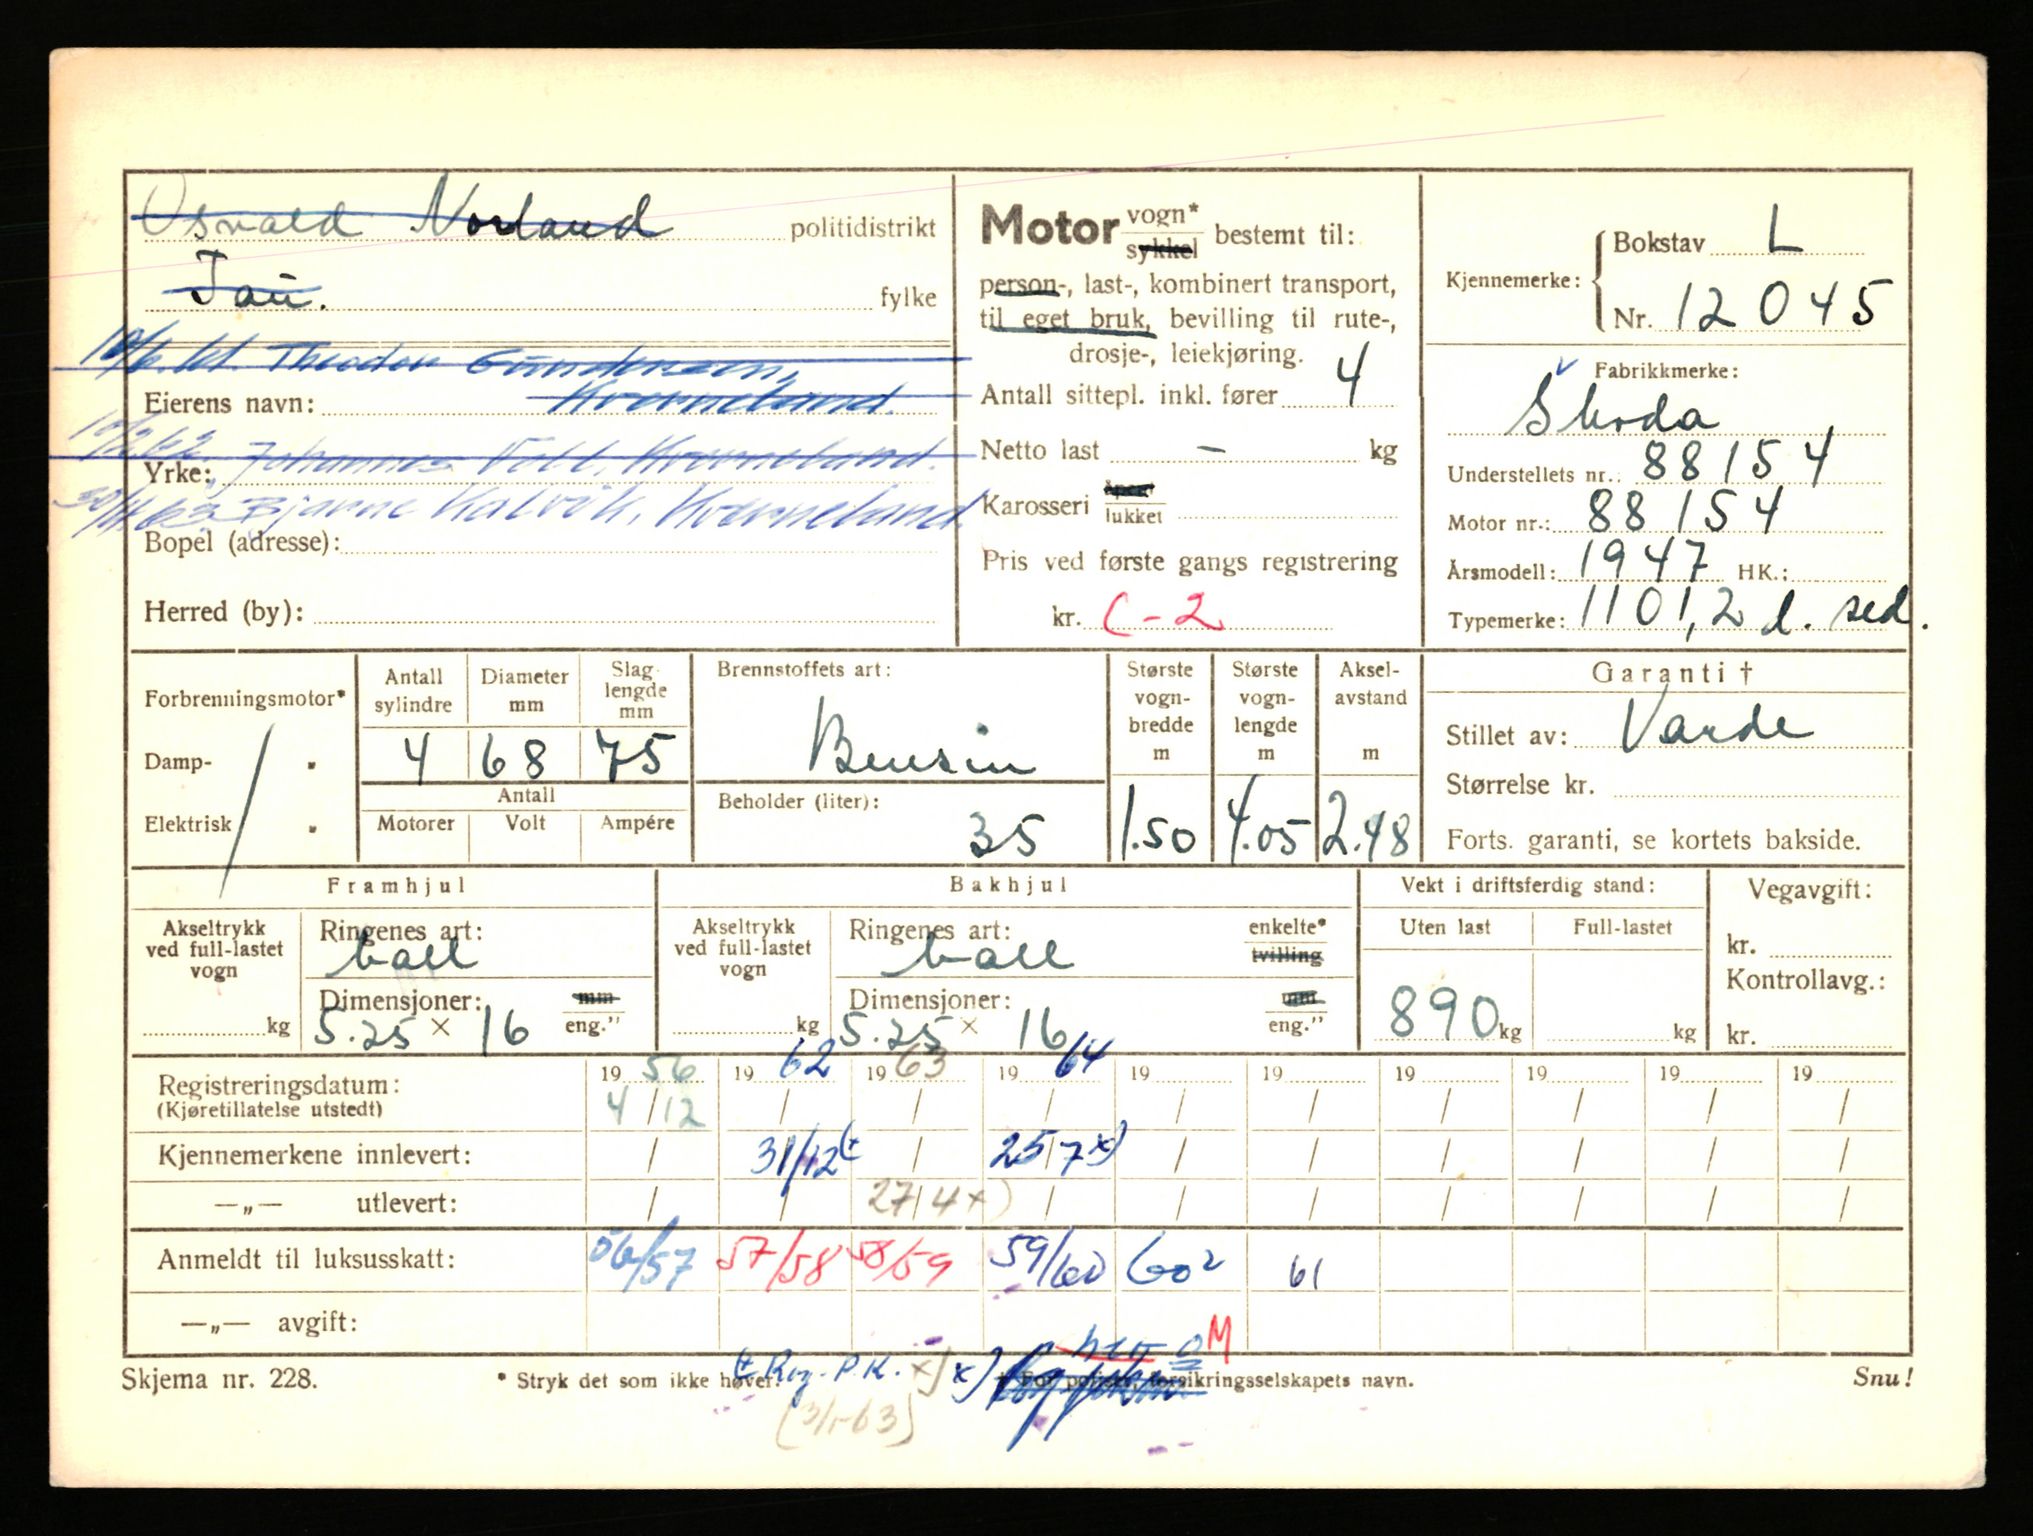 Osvald Norland politidistrikt
Tau. fylke
10/6.61. Theodor Gundersen,
Kverneland.
Eierens navn:
10/2 62 Johannes Voll, Kverneland.
Yrke:
30/11 63 Bjarne Kalvik, Kverneland.
Bopel (adresse):
Herred (by):
Motor vogn* sykkel bestemt til:
person-, last-, kombinert transport,
til eget bruk, bevilling til rute-,
drosje-, leiekjøring.
Antall sittepl. inkl. fører 4
Netto last – kg
Karosseri åpent lukket
Pris ved første gangs registrering
kr. C-2
Kjennemerke: Bokstav L
Nr. 12045
Fabrikkmerke:
Škoda
Understellets nr.: 88154
Motor nr.: 88154
Årsmodell: 1947 HK.:
Typemerke: 1101, 2 d. sed.
Forbrenningsmotor*
Damp- "
Elektrisk "
Antall sylindre Diameter mm Slaglengde mm
4 68 75
Antall
Motorer Volt Ampére
Brennstoffets art:
Bensin
Beholder (liter):
35
Største vogn-bredde m
1.50
Største vogn-lengde m
4.05
Aksel-avstand m
2.48
Garanti †
Stillet av: Varde
Størrelse kr.
Forts. garanti, se kortets bakside.
Framhjul
Akseltrykk ved full-lastet vogn
kg
Ringenes art:
ball
Dimensjoner: mm
5.25 × 16 eng."
Bakhjul
Akseltrykk ved full-lastet vogn
kg
Ringenes art: enkelte*
ball tvilling
Dimensjoner: mm
5.25 × 16 eng."
Vekt i driftsferdig stand:
Uten last Full-lastet
890 kg kg
Vegavgift:
kr.
Kontrollavg.:
kr.
Registreringsdatum: 19 56 19 62 19 63 19 64 19 19 19 19 19 19
(Kjøretillatelse utstedt) 4/12 / / / / / / / / /
Kjennemerkene innlevert: / 31/12 (+ / 25/7 x) / / / / / /
—„— utlevert: / / 27/4 x) / / / / / / /
Anmeldt til luksusskatt: 56/57 57/58 58/59 59/60 60² 61
—„— avgift:
M
Skjema nr. 228. * Stryk det som ikke høver. (+ Reg. P.K. x) x) † For polise, forsikringsselskapets navn. Snu!
(3/1-63)